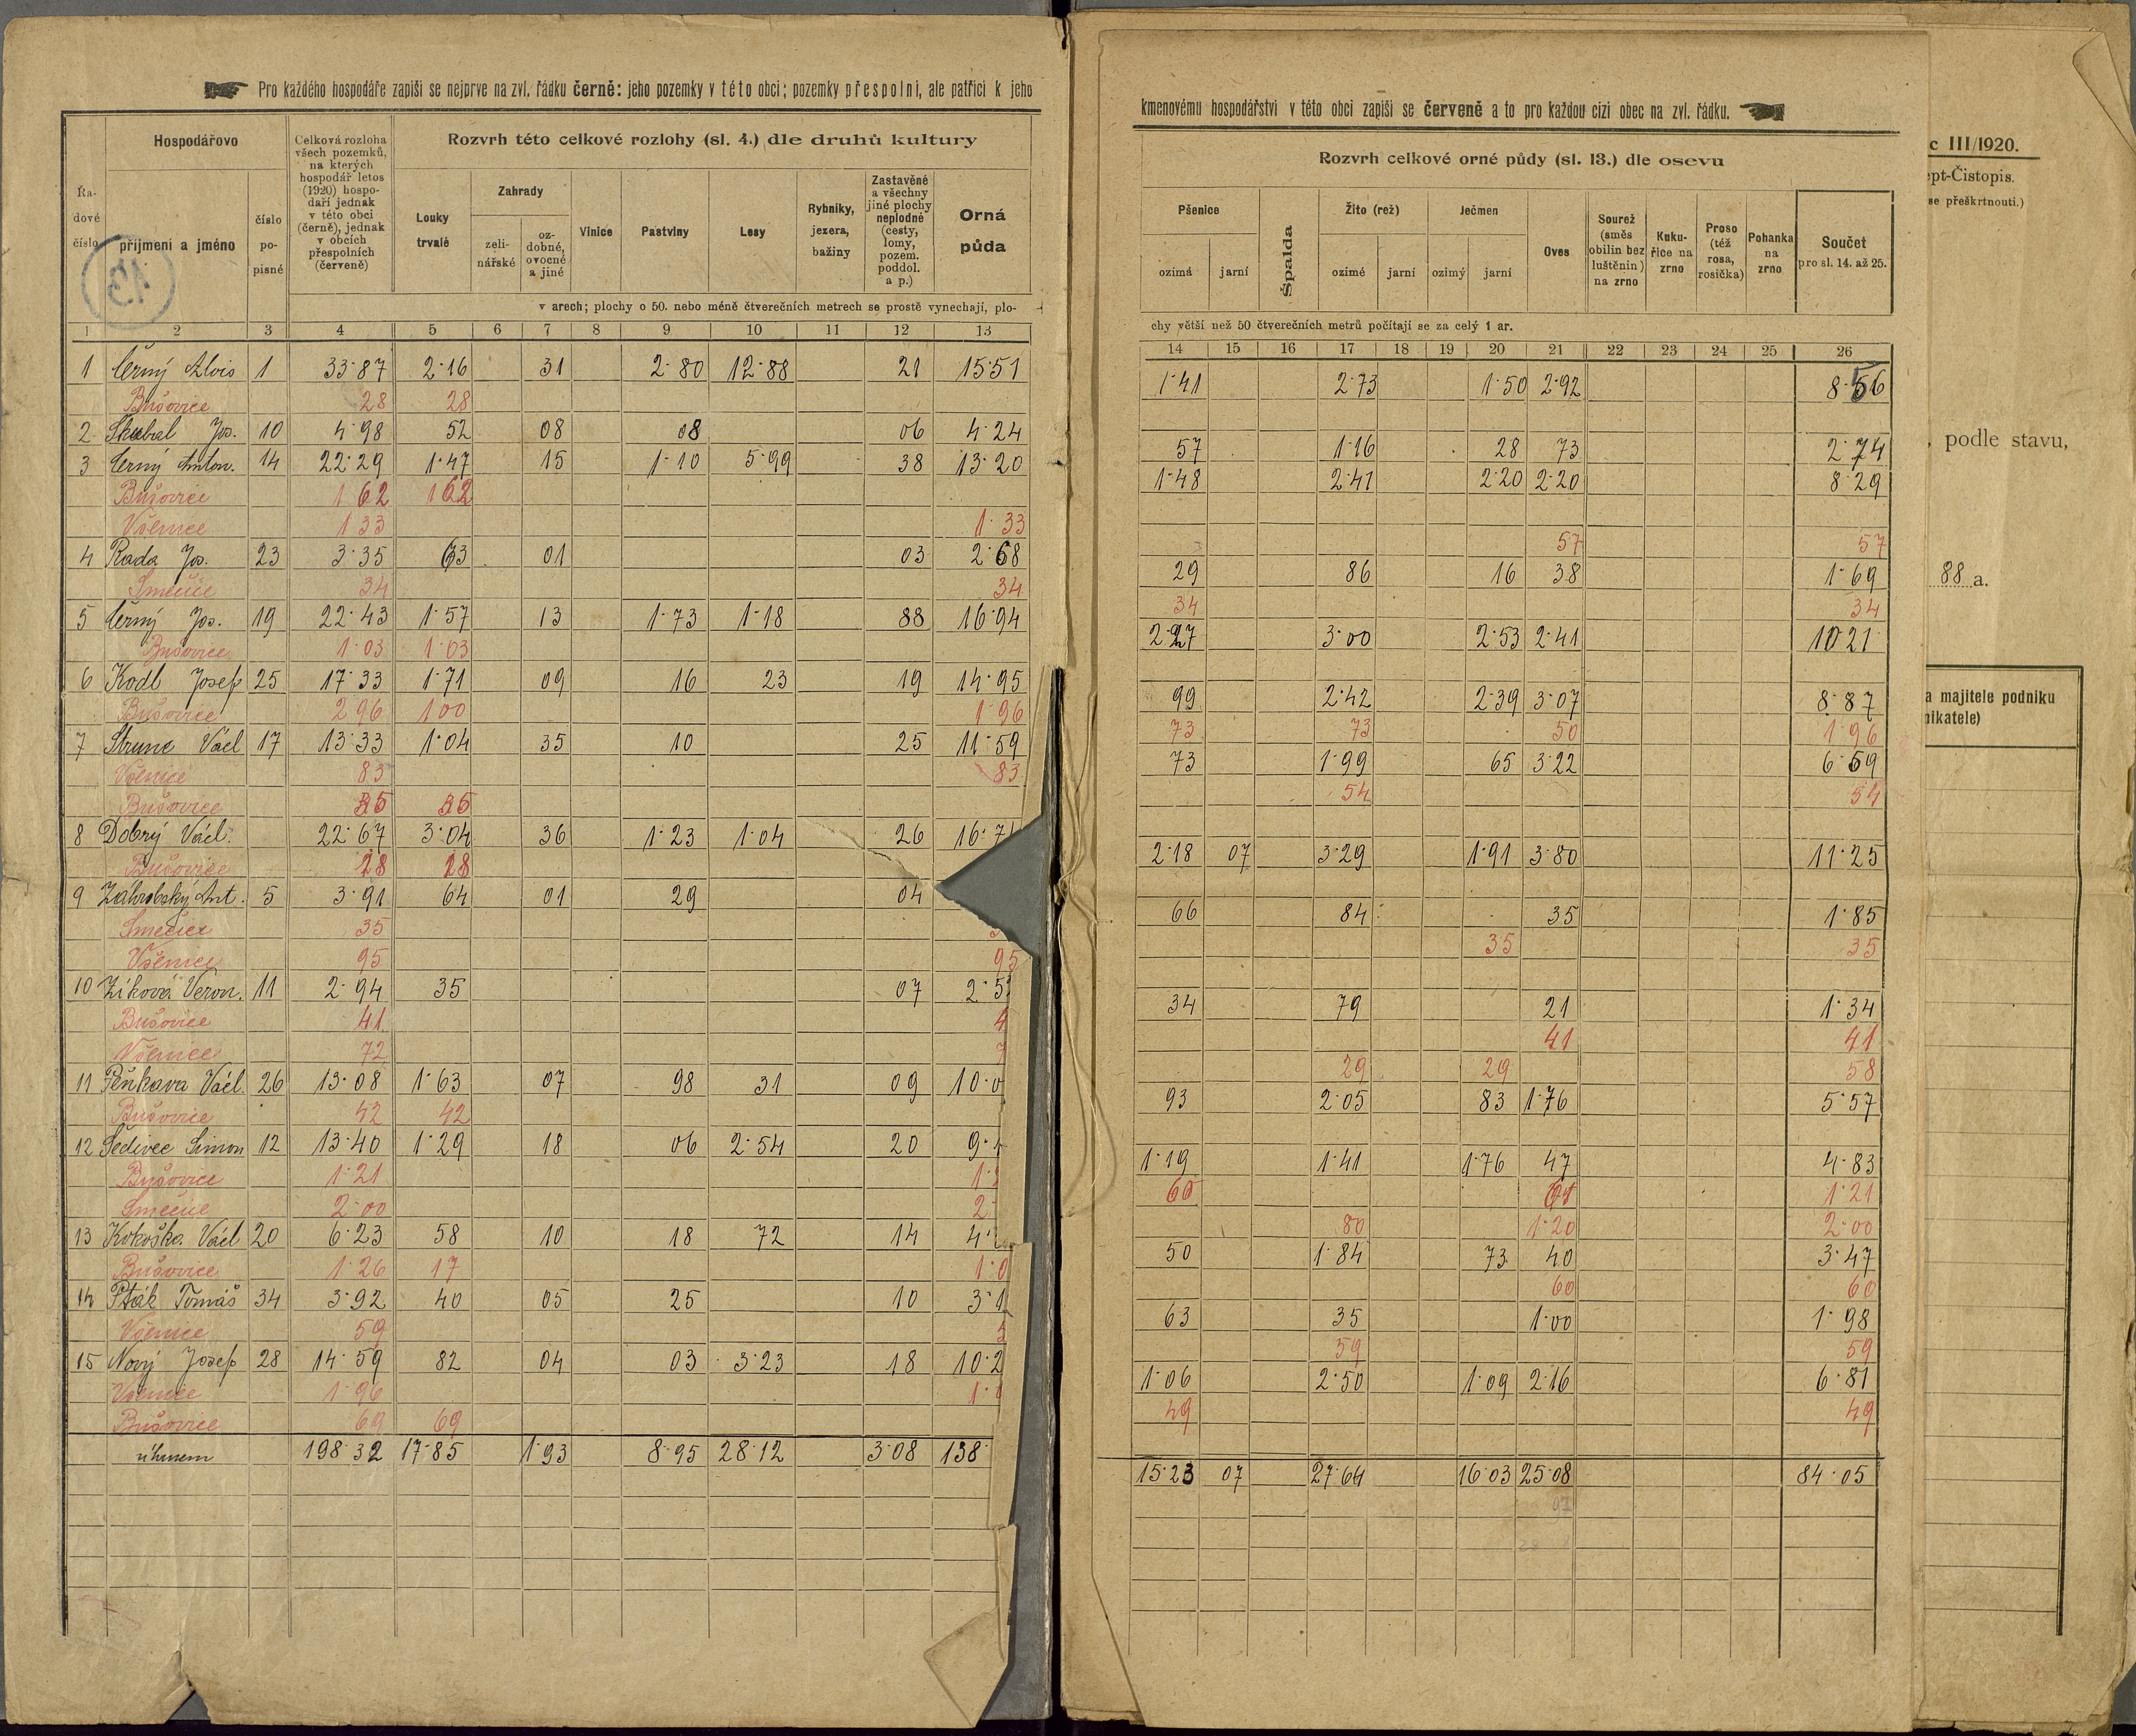 Pro každého hospodáře zapíši se nejprve na zvl. řádku černě: jeho pozemky v této obci; pozemky přespolní, ale patřící k jeho
Řadové číslo
Hospodářovo
příjmení a jméno
číslo popisné
Celková rozloha všech pozemků, na kterých hospodář letos (1920) hospodaří jednak v této obci (černě), jednak v obcích přespolních (červeně)
Rozvrh této celkové rozlohy (sl. 4.) dle druhů kultury
Louky trvalé
Zahrady
zelinářské
ozdobné, ovocné a jiné
Vinice
Pastviny
Lesy
Rybníky, jezera, bažiny
Zastavěné a všechny jiné plochy neplodné (cesty, lomy, pozem. poddol. a p.)
Orná půda
v arech; plochy o 50. nebo méně čtverečních metrech se prostě vynechají, plo-
1 2 3 4 5 6 7 8 9 10 11 12 13
1 Černý Alois 1 33·87 2·16 31 2·80 12·88 21 15·51
Bušovice 28 28
2 Skubal Jos. 10 4·98 52 08 08 06 4·24
3 Černý Anton. 14 22·29 1·47 15 1·10 5·99 38 13·20
Bušovice 1 62 1 62
Všenice 1 33 1·33
4 Rada Jos. 23 3·35 63 01 03 2·68
Smečice 34 34
5 Černý Jos. 19 22·43 1·57 13 1·73 1·18 88 16·94
Bušovice 1·03 1·03
6 Kodl Josef 25 17·33 1·71 09 16 23 19 14·95
Bušovice 2 96 1 00 1 96
7 Strunc Václ 17 13·33 1·04 35 10 25 11·59
Všenice 83 83
Bušovice
8 Dobrý Václ. 22·67 3·04 36 1·23 1·04 26 16·7
Bušovice 28 28
9 Záhrobský Ant. 5 3·91 64 01 29 04
Smečice 35
Všenice 95 95
10 Zíková Veron. 11 2·94 35 07 2·5
Bušovice 41 4
Všenice 72 7
11 Peňkava Václ. 26 13·08 1·63 07 98 31 09 10·0
Bušovice 42 42
12 Šedivec Simon 12 13·40 1·29 18 06 2·54 20 9·
Bušovice 1·21 1·
Smečice 2·00 2·
13 Kokoška Václ 20 6·23 58 10 18 72 14 4·
Bušovice 1·26 17 1·0
14 Pták Tomáš 34 3·92 40 05 25 10 3·1
Všenice 59 5
15 Nový Josef 28 14·59 82 04 03 3·23 18 10·2
Všenice 1·96 1·
Bušovice 69 69
úhrnem 198·32 17·85 1·93 8·95 28·12 3·08 138·
kmenovému hospodářství v této obci zapíši se červeně a to pro každou cizí obec na zvl. řádku.
Rozvrh celkové orné půdy (sl. 13.) dle osevu
Pšenice
ozimá
jarní
Špalda
Žito (rež)
ozimé
jarní
Ječmen
ozimý
jarní
Oves
Sourež (směs obilin bez luštěnin) na zrno
Kukuřice na zrno
Proso (též rosa, rosička)
Pohanka na zrno
Součet
pro sl. 14. až 25.
chy větší než 50 čtverečních metrů počítají se za celý 1 ar.
14 15 16 17 18 19 20 21 22 23 24 25 26
1·41 2·73 1·50 2·92 8·56
57 1·16 28 73 2·74
1·48 2·41 2·20 2·20 8·29
57 57
29 86 16 38 1·69
34 34
2·27 3·00 2·53 2·41 10 21
99 2·42 2·39 3·07 8·87
73 73 50 1·96
73 1·99 65 3·22 6·59
54 54
2·18 07 3·29 1·91 3·80 11·25
66 84 35 1·85
35 35
34 79 21 1·34
41 41
29 29 58
93 2·05 83 1·76 5·57
1·19 1·41 1·76 47 4·83
60 61 1·21
80 1·20 2·00
50 1·84 73 40 3·47
60 60
63 35 1·00 1·98
59 59
1·06 2·50 1·09 2·16 6·81
49 49
15·23 07 27·64 16·03 25·08 84·05
c III/1920.
ept-Čistopis.
se přeškrtnouti.)
, podle stavu,
88 a.
a majitele podniku
nikatele)